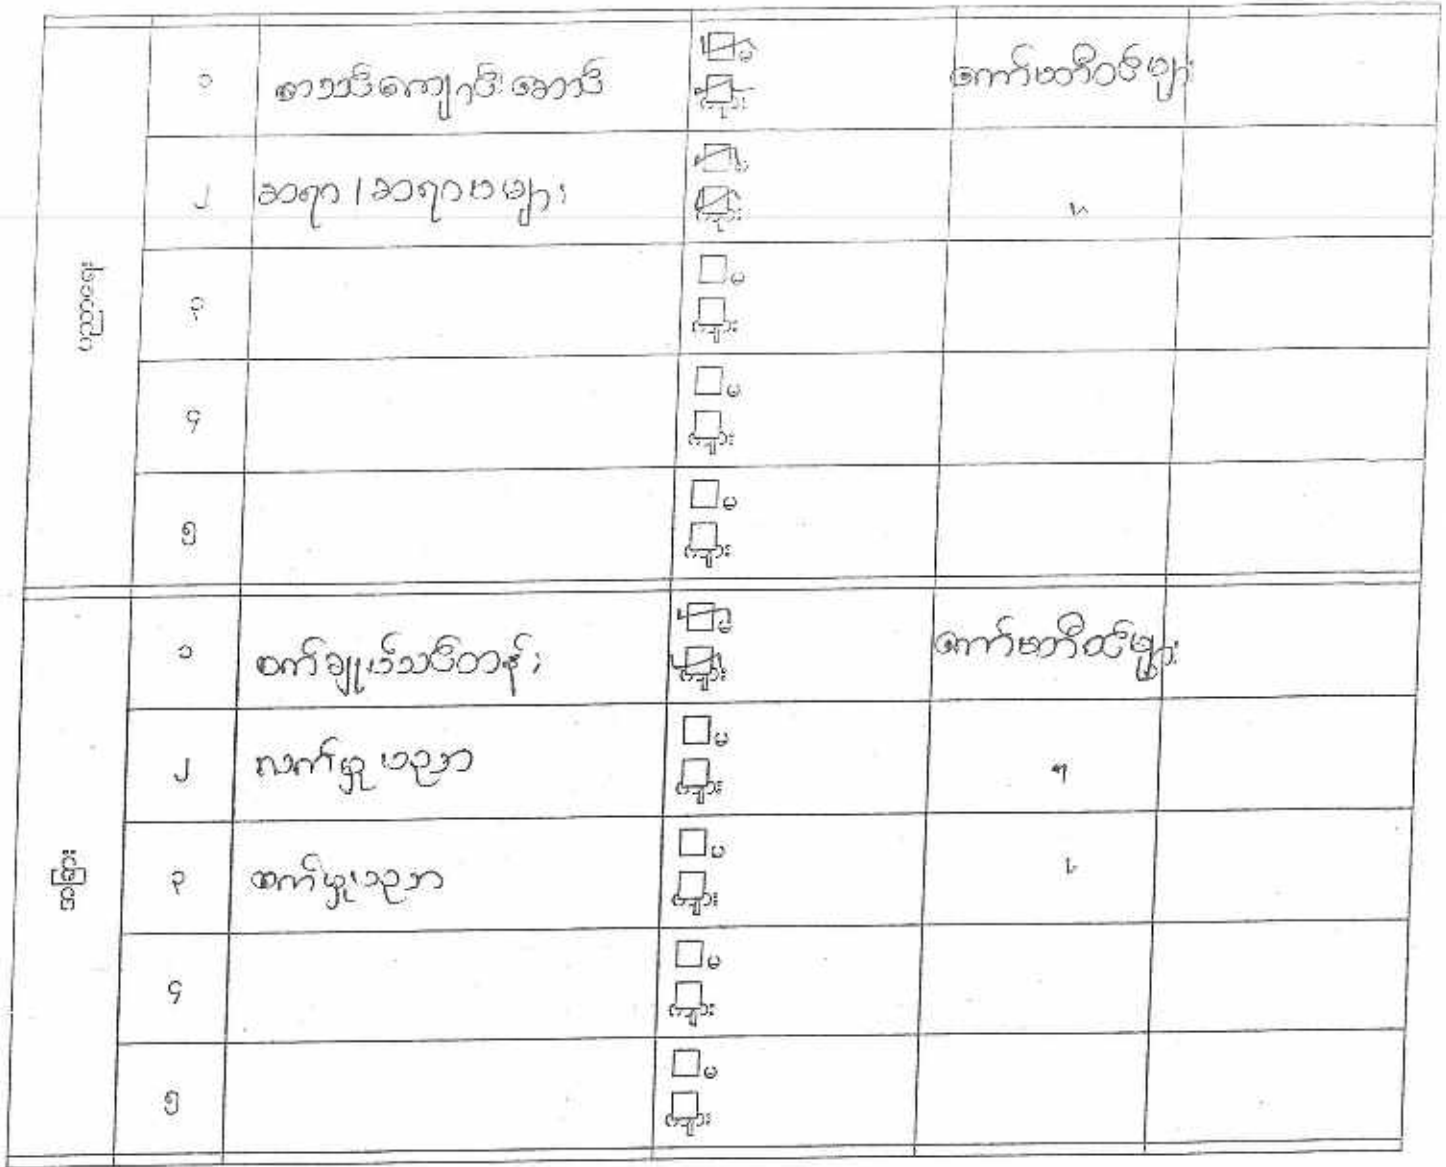 ပညာရေး
၁ စာသင်ကျောင်းဆောင် မ ကျား ကော်မတီဝင်များ
၂ ဆရာ/ဆရာမများ မ ကျား "
၃ မ ကျား
၄ မ ကျား
၅ မ ကျား
အခြား
၁ စက်ချုပ်သင်တန်း မ ကျား ကော်မတီဝင်များ
၂ လက်မှုပညာ မ ကျား "
၃ စက်မှုပညာ မ ကျား "
၄ မ ကျား
၅ မ ကျား